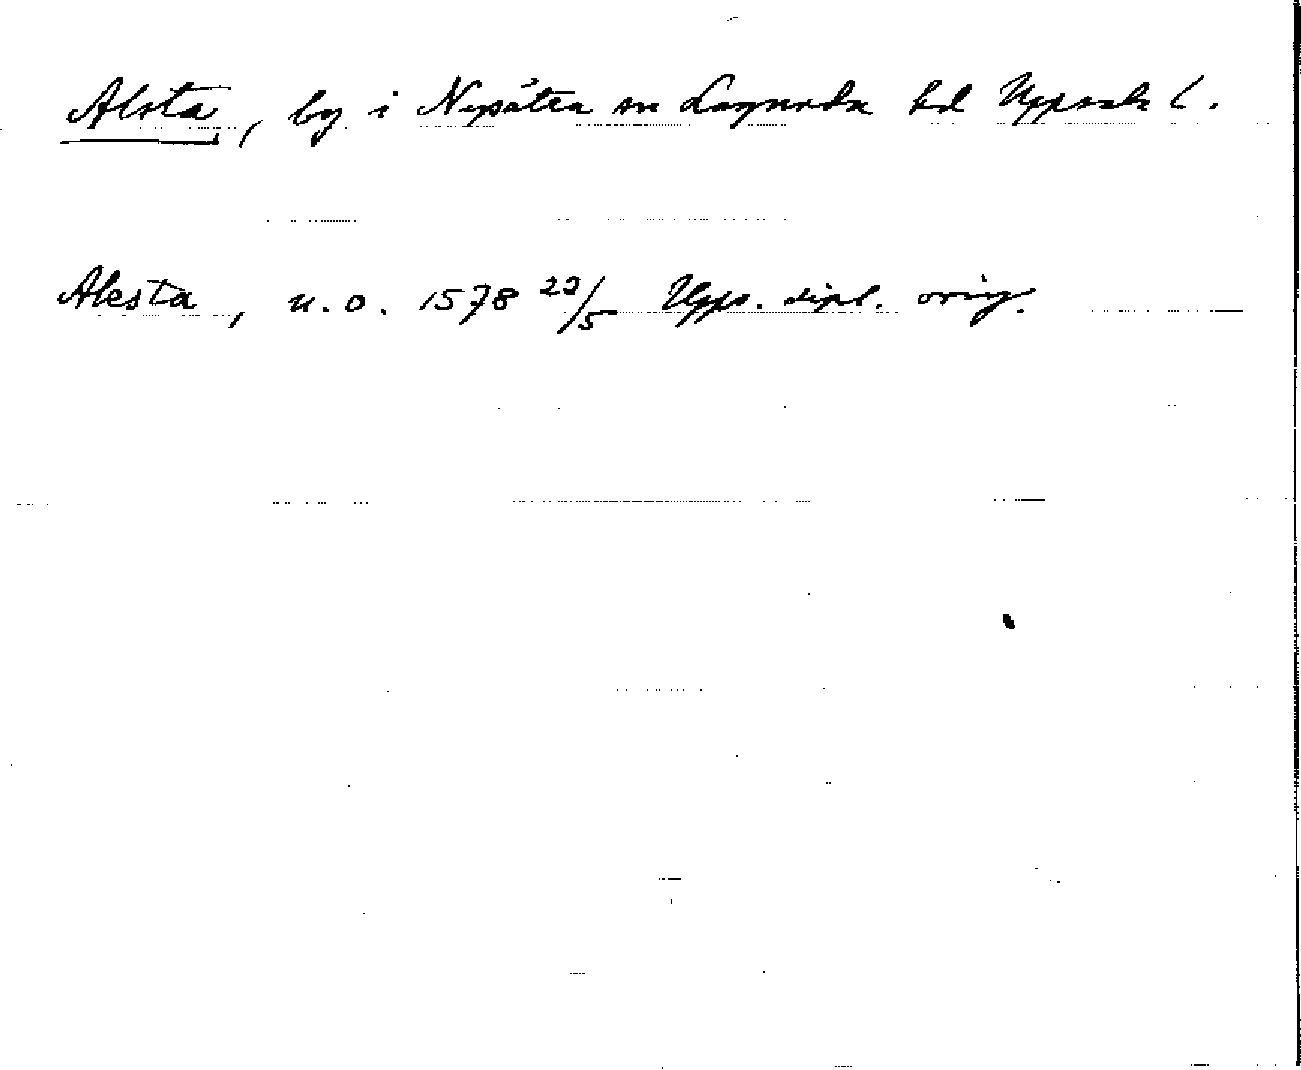 Alsta, by i Nysätra sn Lagunda hd Uppsala l.
Alesta, u.o. 1578 22/5 Upps. dipl. orig.